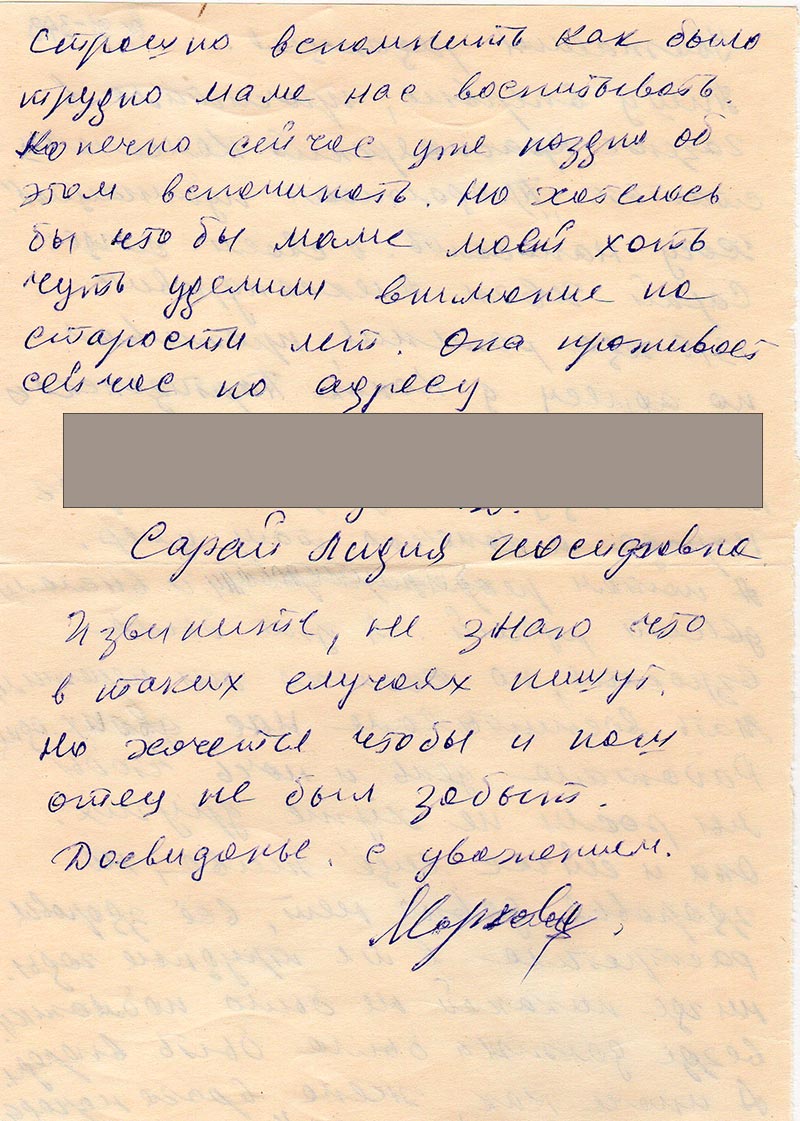 Строшно вспомнить как было
трудно маме нас воспитывать.
Конечно сейчас уже поздно об
этом вспоминать. Но хотелось
бы что бы маме моей хоть
чуть уделили внимание на
старости лет. Она проживает
сейчас по адресу
Сарай Лидия Иосифовна
Извините, не знаю что
в таких случаях пишут.
Но хочется чтобы и наш
отец не был забыт.
Досвиданье. с уважением.